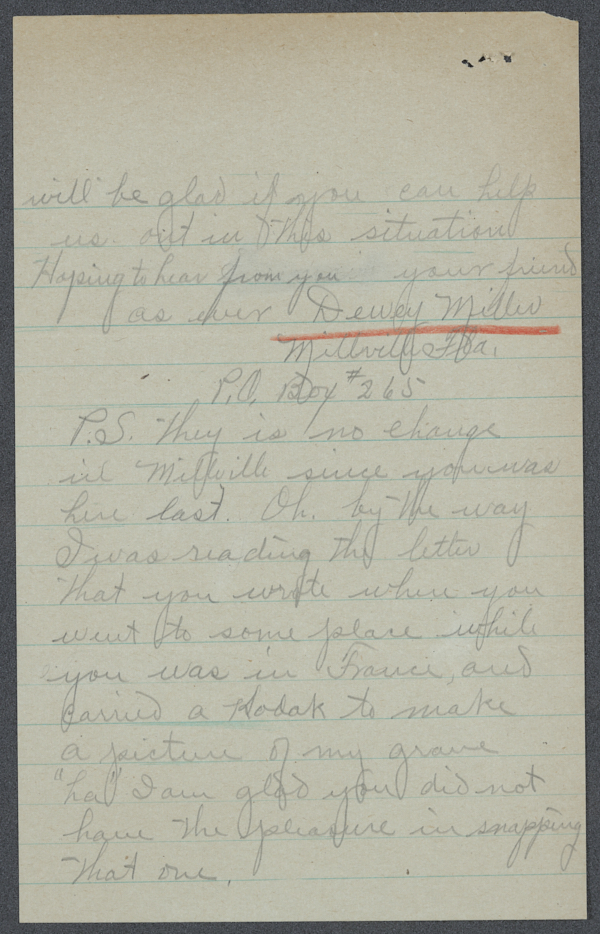 will be glad if you can help
us. out in this situation
Hoping to hear from you your friend
as ever Dewey Miller
Millville Fla.
P.O. Box #265
P.S. they is no change
in Millville since you was
here last. Oh. by the way
I was reading the letter
that you wrote when you
went to some place while
you was in France, and
carried a Kodak to make
a picture of my grave
"ha" I am glad you did not
have the pleasure in snapping
that one.